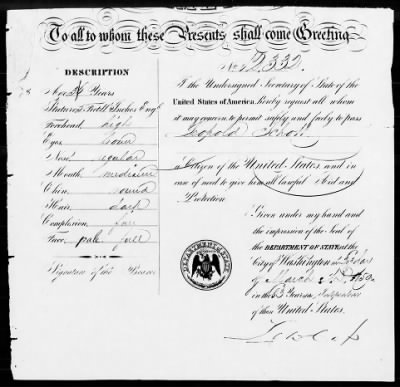 To all to whom these Presents shall come Greeting
No. 2332
DESCRIPTION
Age Years
Stature Feet Inches Engl
Forehead high
Eyes
Nose regular
Mouth medium
Chin round
Hair dark
Complexion fair
Face pale full
Signature of the Bearer
I the Undersigned Secretary of State of the
United States of America, hereby request all whom
it may concern to permit safely and freely to pass
Leopold Schott
a Citizen of the United States, and in
case of need to give him all lawful Aid and
Protection
Given under my hand and
the impression of the Seal of
the DEPARTMENT OF STATE at the
City of Washington, the day
of March
in the 83 Year of the Independence
of these United States.
DEPARTMENT OF STATE